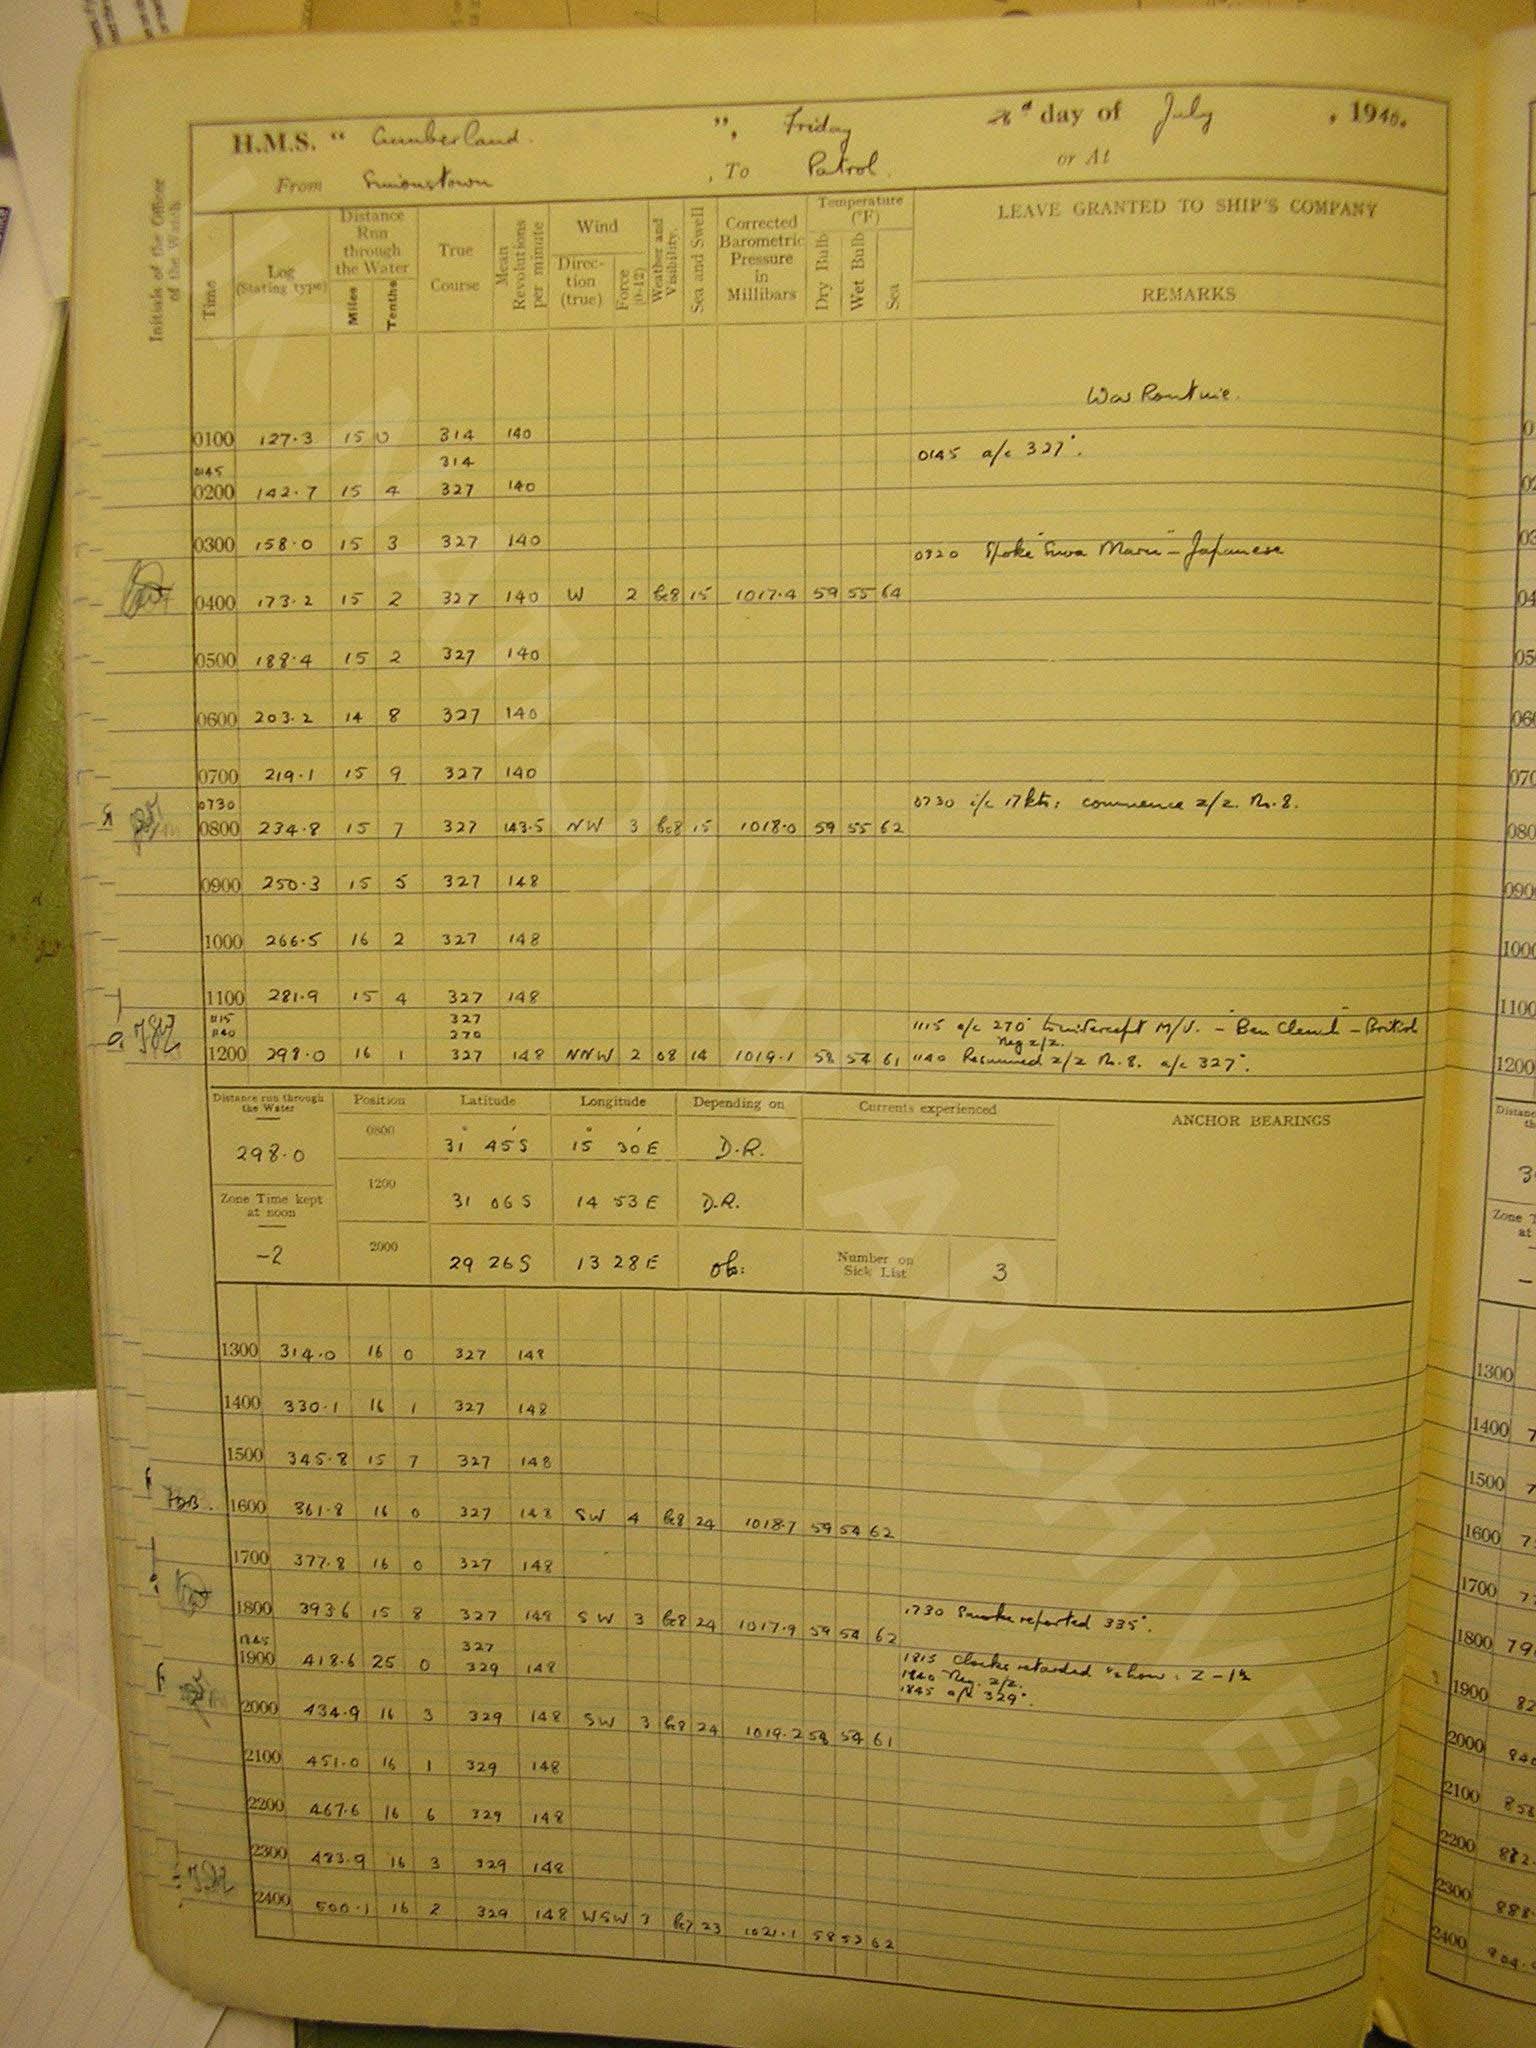 H.M.S. " Cumberland ", Friday day of July , 1940.
From Simonstown , To Patrol. or At
Initials of the Officer of the Watch
Time
Log (Stating type)
Distance Run through the Water
Miles Tenths
True Course
Mean Revolutions per minute
Wind
Direction (true)
Force (0-12)
Weather and Visibility.
Sea and Swell
Corrected Barometric Pressure in Millibars
Temperature (°F)
Dry Bulb
Wet Bulb
Sea
LEAVE GRANTED TO SHIP'S COMPANY
REMARKS
War Routine.
0100 127.3 15 0 314 140
0145 314 0145 a/c 327°.
0200 142.7 15 4 327 140
0300 158.0 15 3 327 140
0320 Spoke "Suwa Maru" - Japanese
0400 173.2 15 2 327 140 W 2 bc8 15 1017.4 59 55 64
0500 188.4 15 2 327 140
0600 203.2 14 8 327 140
0700 219.1 15 9 327 140
0730 0730 i/c 17 kts: commence z/z. No. 8.
0800 234.8 15 7 327 143.5 NW 3 bc8 15 1018.0 59 55 62
0900 250.3 15 5 327 148
1000 266.5 16 2 327 148
1100 281.9 15 4 327 148
1115 327 1115 a/c 270° to intercept M/V. - - British
Neg z/z.
1140 270
1200 298.0 16 1 327 148 NNW 2 08 14 1019.1 58 54 61 1140 Resumed z/z No. 8. a/c 327°.
Distance run through the Water
298.0
Zone Time kept at noon
-2
Position Latitude Longitude Depending on
0800 31° 45' S 15° 30' E D.R.
1200 31 06 S 14 53 E D.R.
2000 29 26 S 13 28 E Ob:
Currents experienced
Number on Sick List 3
ANCHOR BEARINGS
1300 314.0 16 0 327 148
1400 330.1 16 1 327 148
1500 345.8 15 7 327 148
1600 361.8 16 0 327 148 SW 4 bc8 24 1018.7 59 54 62
1700 377.8 16 0 327 148
1730 Smoke reported 335°.
1800 393.6 15 8 327 148 SW 3 bc8 24 1017.9 59 54 62
1845 327
1815 Clocks retarded hour: Z -1½
1840 Neg. z/z.
1845 a/c 329°.
1900 418.6 25 0 329 148
2000 434.9 16 3 329 148 SW 3 bc8 24 1019.2 58 54 61
2100 451.0 16 1 329 148
2200 467.6 16 6 329 148
2300 483.9 16 3 329 148
2400 500.1 16 2 329 148 WSW 3 bc7 23 1021.1 58 53 62